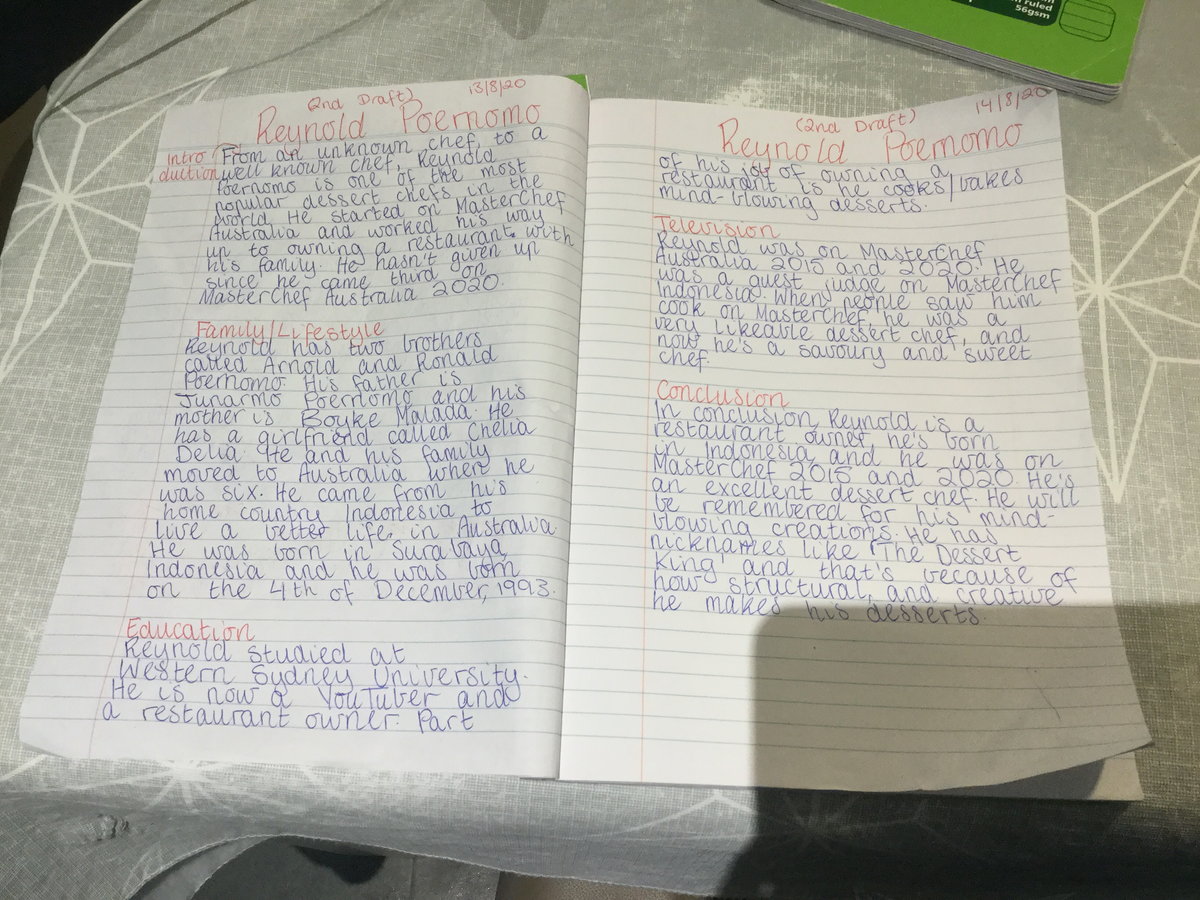 n ruled
56gsm
(2nd Draft) 13/8/20
Reynold Poernomo
Intro
duction
From an unknown chef, to a
well known chef, Reynold
Poernomo is one of the most
popular dessert chefs in the
world. He started on MasterChef
Australia and worked his way
up to owning a restaurant with
his family. He hasn't given up
since he came third on
MasterChef Australia 2020.
Family/Lifestyle
Reynold has two brothers
called Arnold and Ronald
Poernomo. His father is
Junarmo Poernomo and his
mother is Boyke Malada. He
has a girlfriend called Chelia
Delia. He and his family
moved to Australia when he
was six. He came from his
home country Indonesia to
live a better life, in Australia.
He was born in Surabaya,
Indonesia and he was born
on the 4th of December, 1993.
Education
Reynold studied at
Western Sydney University.
He is now a YouTuber and
a restaurant owner. Part
(2nd Draft) 14/8/20
Reynold Poernomo
of his job of owning a
restaurant is he cooks/bakes
mind-blowing desserts.
Television
Reynold was on MasterChef
Australia 2015 and 2020. He
was a guest judge on MasterChef
Indonesia. When people saw him
cook on Masterchef, he was a
very likeable dessert chef, and
now he's a savoury and sweet
chef.
Conclusion
In conclusion, Reynold is a
restaurant owner, he's born
in Indonesia and he was on
MasterChef 2015 and 2020. He's
an excellent dessert chef. He will
be remembered for his mind-
blowing creations. He has
nicknames like 'The Dessert
King' and that's because of
how structural, and creative
he makes his desserts.